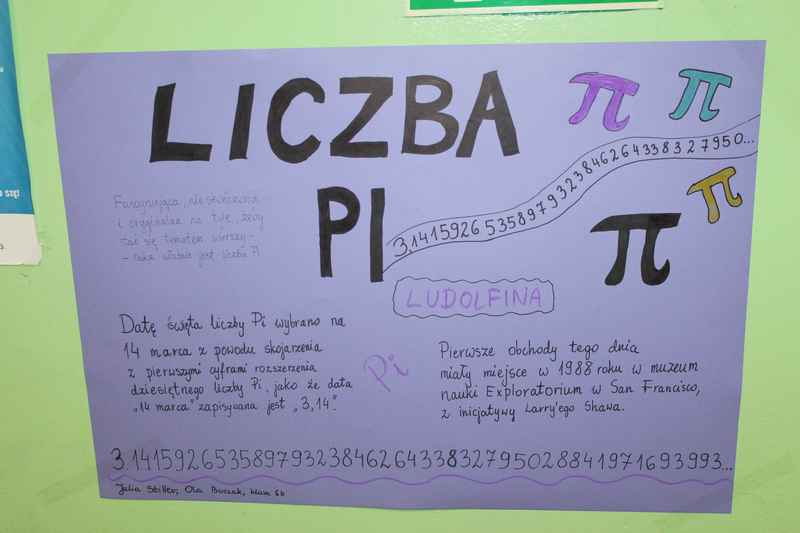 LICZBA
PI
3,1415926535897932384626433832795 0...
Fascynująca, nieskończona
i oryginalna na tyle, żeby
stać się tematem wierszy -
- taka właśnie jest liczba Pi
LUDOLFINA
Datę święta liczby Pi wybrano na
14 marca z powodu skojarzenia
z pierwszymi cyframi rozszerzenia
dziesiętnego liczby Pi, jako że data
„14 marca” zapisywana jest „3,14”.
Pi
Pierwsze obchody tego dnia
miały miejsce w 1988 roku w muzeum
nauki Exploratorium w San Francisco,
z inicjatywy Larry'ego Shawa.
π
π
π
π
3.1415926535897932384626433832795028841971693993...
Julia Ola klasa 6b